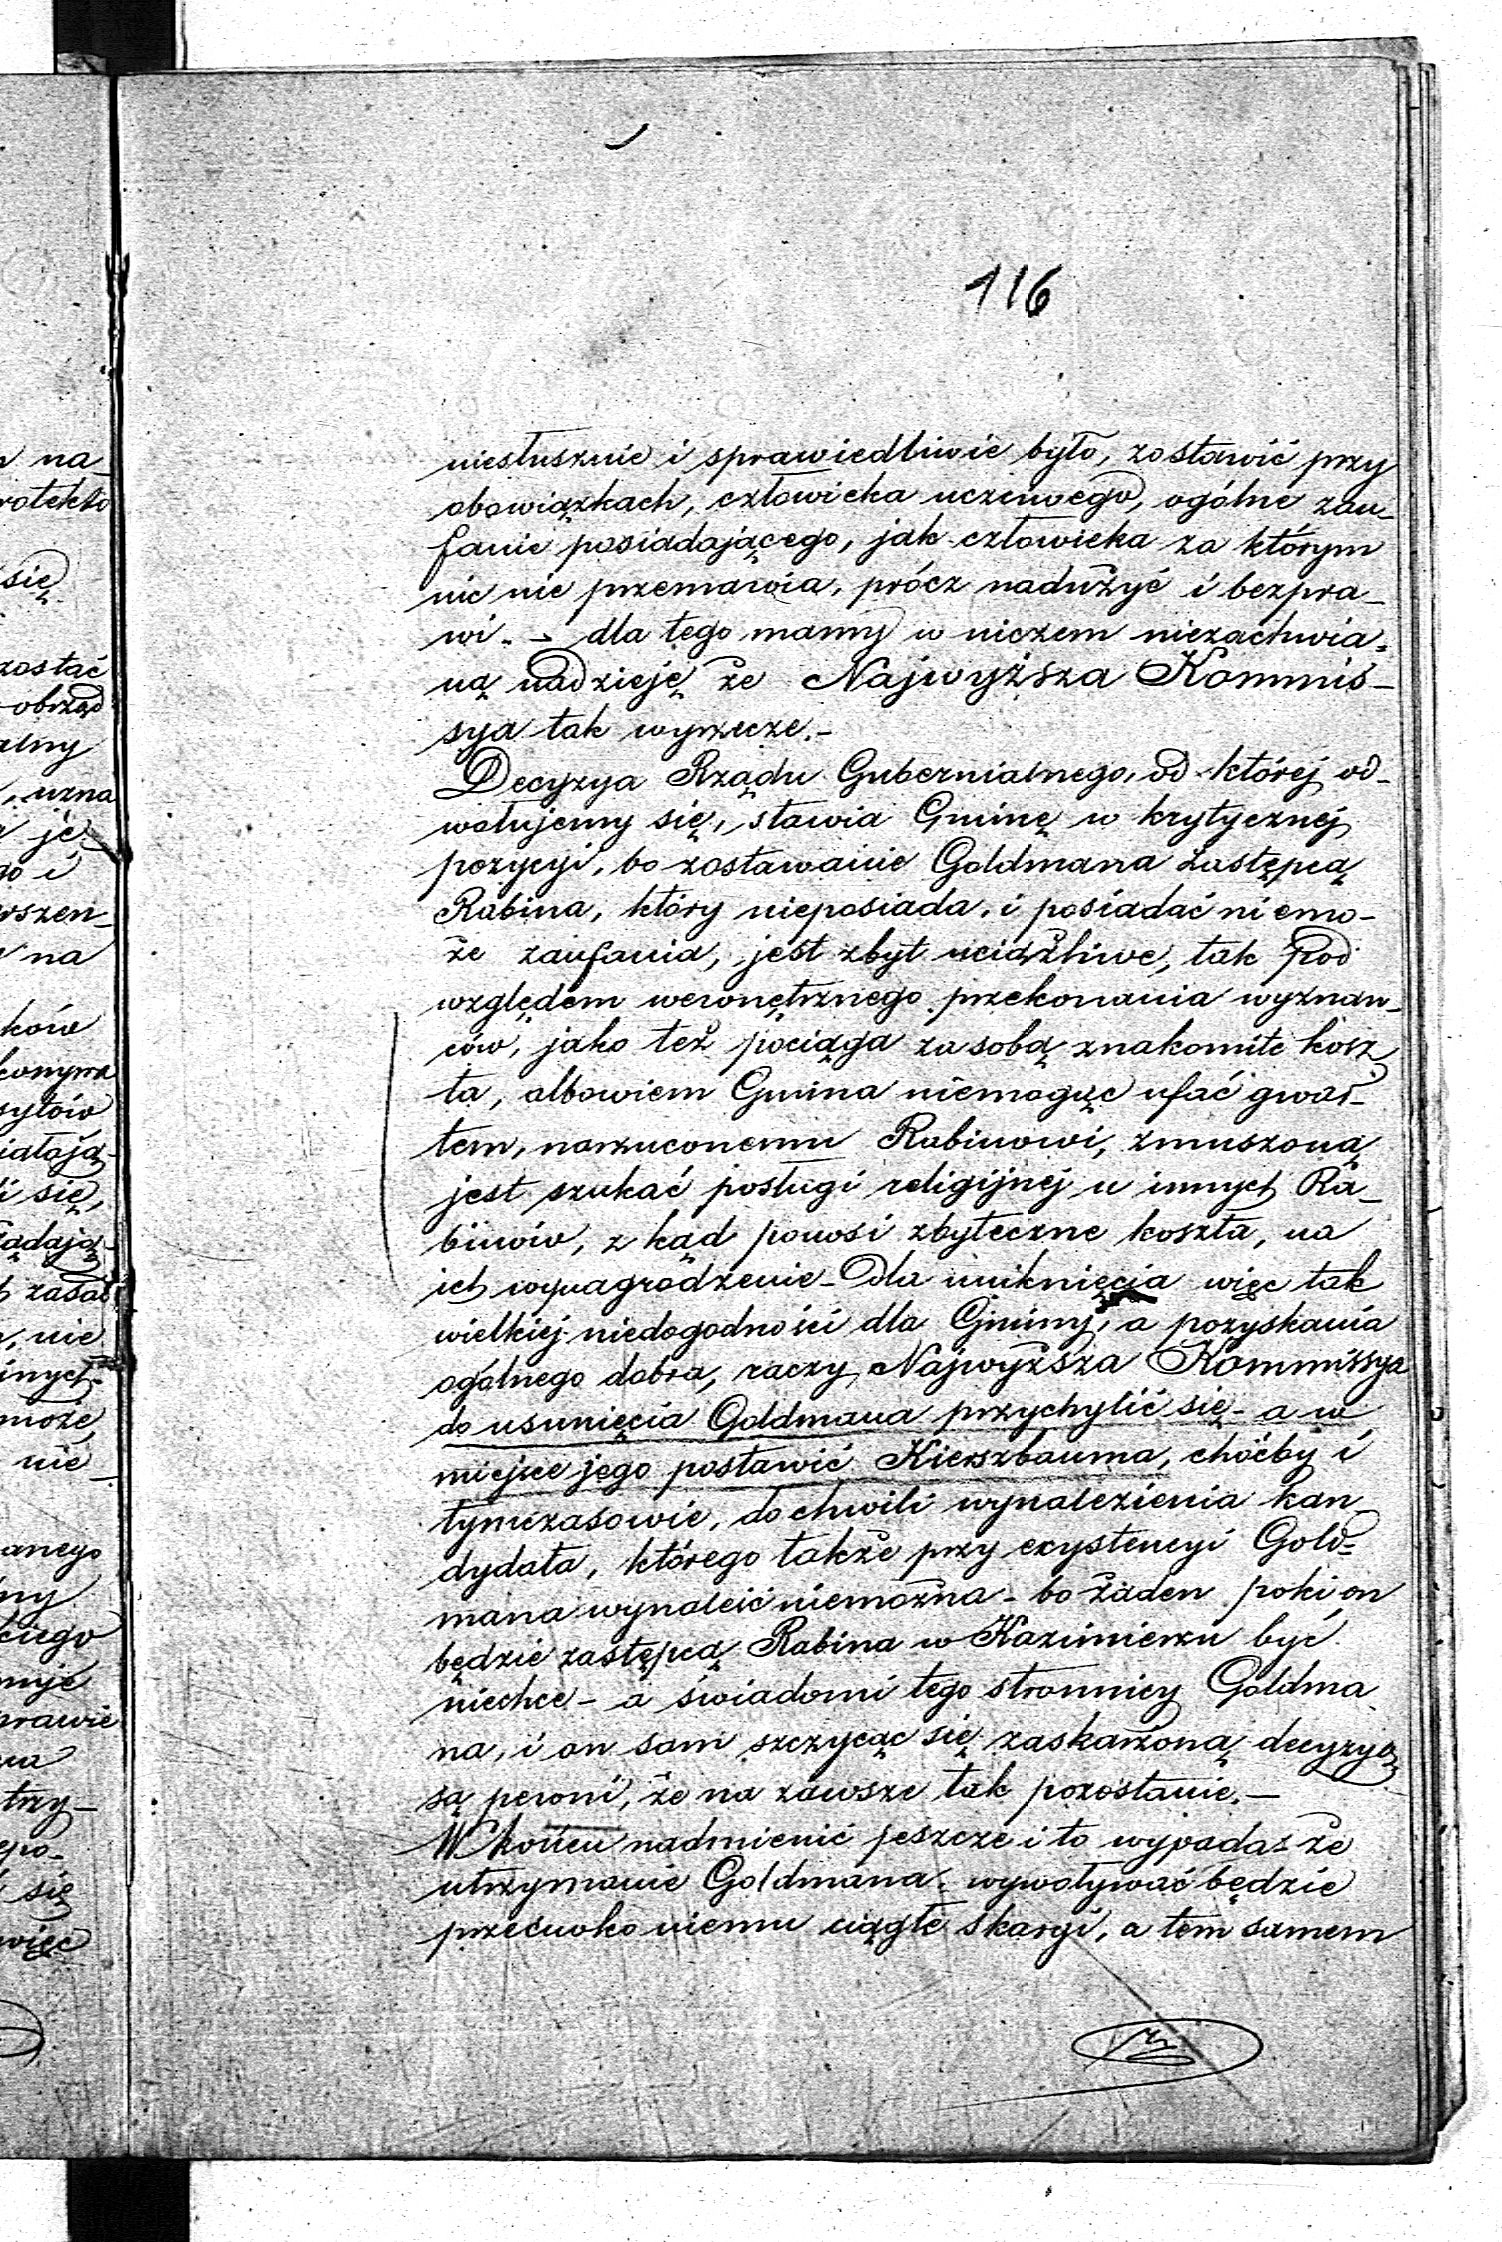 116
niesłusznie i sprawiedliwie było, zostawić przy
obowiązkach, człowieka uczciwego, ogólne zau-
fanie posiadającego, jak człowieka za którym
nic nie przemawia, prócz nadużyć i bezpra-
wi. - dla tego mamy w niczem niezachwia-
ną nadzieję że Najwyższa Kommis-
sya tak wyrzecze.-
Decyzya Rządu Gubernialnego, od której od-
wołujemy się, stawia Gminę w krytycznej
pozycyi, bo zostawanie Goldmana Zastępcą
Rabina, który nieposiada, i posiadać niemo-
że zaufania, jest zbyt uciążliwe, tak pod
względem wewnętrznego przekonania wyznaw-
ców, jako też pociąga za sobą znakomite kosz-
ta, albowiem Gmina niemogąc ufać gwał-
tem, narzuconemu Rabinowi, zmuszoną
jest szukać posługi religijnej u innych Ra-
binów, z kąd ponosi zbyteczne koszta, na
ich wynagrodzenie - Dla uniknięcia więc tak
wielkiej niedogodności dla Gminy, a pozyskania
ogólnego dobra, raczy Najwyższa Kommissya
do usunięcia Goldmana przychylić się - a w
miejsce jego postawić Kierszbauma, choćby i
tymczasowie, do chwili wynalezienia kan-
dydata, którego także przy exystencyi Gold-
mana wynaleść niemożna - bo żaden poki on
będzie zastępcą Rabina w Kazimierzu być
niechce - a świadomi tego stronnicy Goldma-
na, i on sam szczycąc się zaskarżoną decyzyą
są pewni, że na zawsze tak pozostanie. -
W końcu nadmienić jeszcze i to wypada - że
utrzymanie Goldmana, wywoływać będzie
przeciwko niemu ciągłe skargi, a tem samem